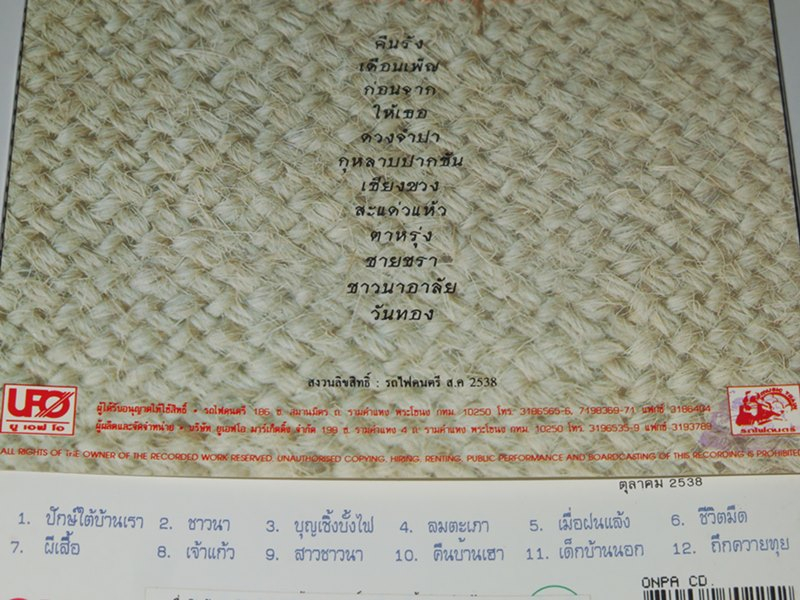 คืนรัง
เดือนเพ็ญ
ก่อนจาก
ให้เธอ
ดวงจำปา
กุหลาบปากซัน
เซียงขวง
สะแด่วแห้ว
ตาหรุ่ง
ชายชรา
ชาวนาอาลัย
วันทอง
สงวนลิขสิทธิ์ : รถไฟดนตรี ส.ค 2538
UFO
ยู เอฟ โอ
ผู้ได้รับอนุญาตให้ใช้สิทธิ์ • รถไฟดนตรี 186 ซ. สมานมิตร ถ. รามคำแหง พระโขนง กทม. 10250 โทร. 3186565-6, 7198369-71 แฟกซ์ 3186404
ผู้ผลิตและจัดจำหน่าย • บริษัท ยูเอฟโอ มาร์เก็ตติ้ง จำกัด 199 ซ. รามคำแหง 4 ถ. รามคำแหง พระโขนง กทม. 10250 โทร. 3196535-9 แฟกซ์ 3193789
MUSIC TRAIN
รถไฟดนตรี
ALL RIGHTS OF THE OWNER OF THE RECORDED WORK RESERVED. UNAUTHORISED COPYING, HIRING, RENTING, PUBLIC PERFORMANCE AND BOARDCASTING OF THIS RECORDING IS PROHIBITED
ตุลาคม 2538
1. ปักษ์ใต้บ้านเรา 2. ชาวนา 3. บุญเซิ้งบั้งไฟ 4. ลมตะเภา 5. เมื่อฝนแล้ง 6. ชีวิตมืด
7. ผีเสื้อ 8. เจ้าแก้ว 9. สาวชาวนา 10. ตีนบ้านเฮา 11. เด็กบ้านนอก 12. ถึกควายทุย
ONPA CD.